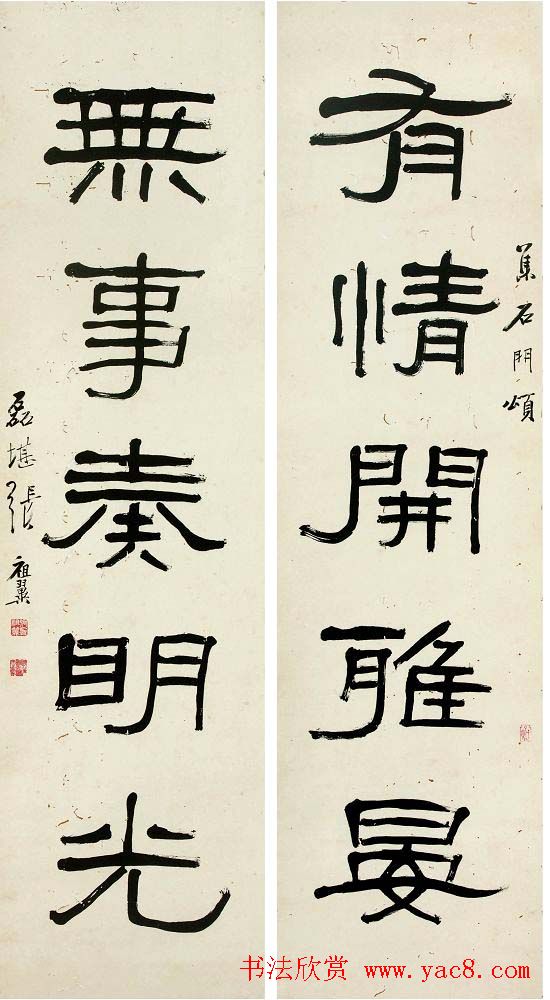 有情開雅晏
集石門頌
無事奏明光
磊堪張祖翼
书法欣赏 www.yac8.com